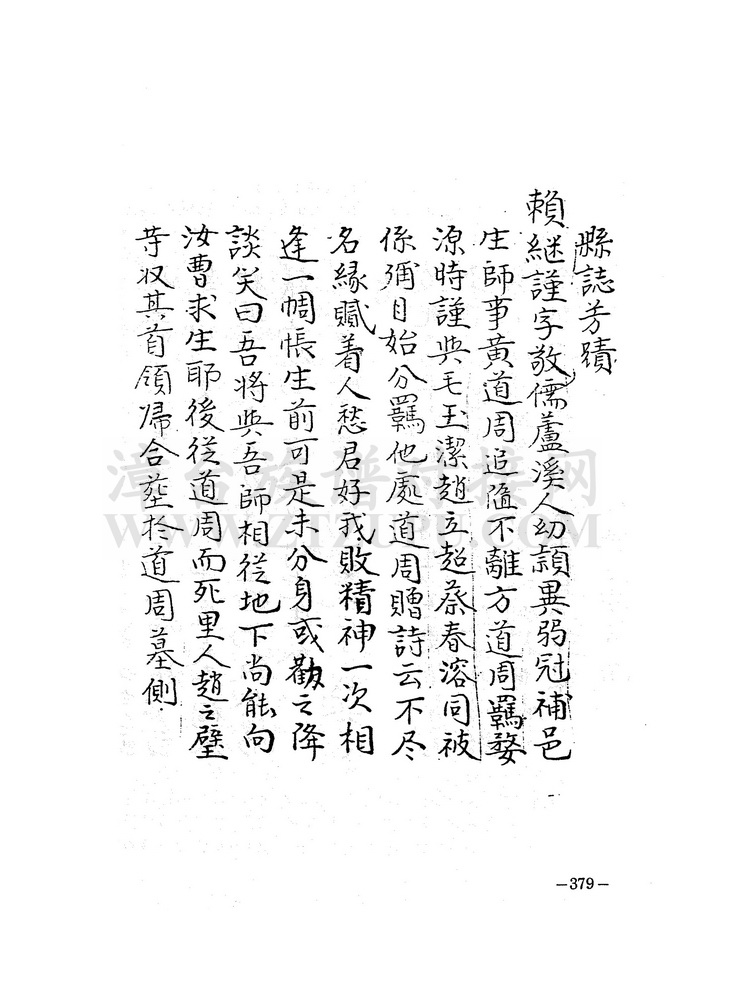 縣誌芳蹟
賴継謹字敬儒蘆溪人幼頴異弱冠補邑
生師亊黃道周追隨不離方道周羈婺
源時謹與毛玉潔趙立超蔡春溶同被
係彌月始分羈他處道周贈詩云不尽
名緣贓着人愁君好我敗精神一次相
逢一惆悵生前可是未分身或勸之降
談笑曰吾將與吾師相從地下尚能向
汝曹求生耶後從道周而死里人趙之璧
等収其首領帰合塟於道周墓側
漳台族谱对接网
WWW.ZTZUPU.COM
—379—